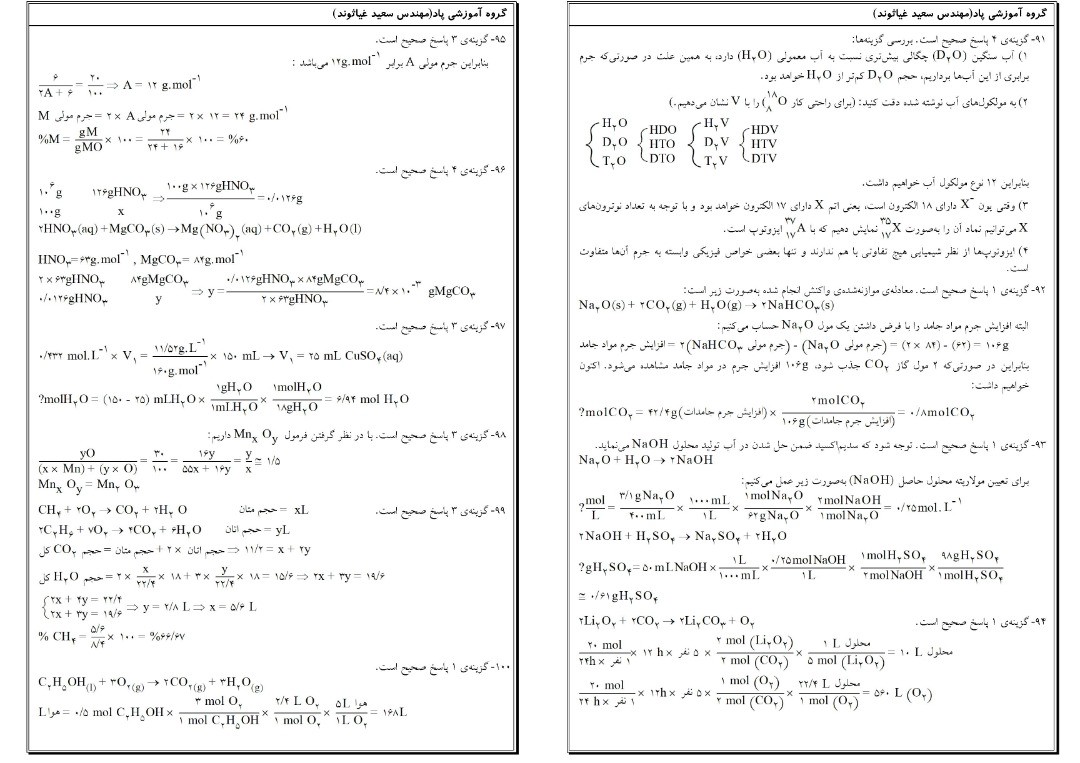 گروه آموزشی پاد(مهندس سعید غیاثوند)
۹۱- گزینه‌ی ۴ پاسخ صحیح است. بررسی گزینه‌ها:
۱) آب سنگین (D₂O) چگالی بیش‌تری نسبت به آب معمولی (H₂O) دارد، به همین علت در صورتی‌که جرم
برابری از این آب‌ها برداریم، حجم D₂O کم‌تر از H₂O خواهد بود.
۲) به مولکول‌های آب نوشته شده دقت کنید: (برای راحتی کار ¹⁸₈O را با V نشان می‌دهیم.)
{ H₂O { HDO { H₂V { HDV
D₂O HTO D₂V HTV
T₂O DTO T₂V DTV
بنابراین ۱۲ نوع مولکول آب خواهیم داشت.
۳) وقتی یون X⁻ دارای ۱۸ الکترون است، یعنی اتم X دارای ۱۷ الکترون خواهد بود و با توجه به تعداد نوترون‌های
X می‌توانیم نماد آن را به‌صورت ³⁵₁₇X نمایش دهیم که با ³⁷₁₇A ایزوتوپ است.
۴) ایزوتوپ‌ها از نظر شیمیایی هیچ تفاوتی با هم ندارند و تنها بعضی خواص فیزیکی وابسته به جرم آن‌ها متفاوت
است.
۹۲- گزینه‌ی ۱ پاسخ صحیح است. معادله‌ی موازنه‌شده‌ی واکنش انجام شده به‌صورت زیر است:
Na₂O(s) + ۲CO₂(g) + H₂O(g) → ۲NaHCO₃(s)
البته افزایش جرم مواد جامد را با فرض داشتن یک مول Na₂O حساب می‌کنیم:
افزایش جرم مواد جامد = ۲(جرم مولی NaHCO₃) - (جرم مولی Na₂O) = (۲ × ۸۴) - (۶۲) = ۱۰۶g
بنابراین در صورتی‌که ۲ مول گاز CO₂ جذب شود، ۱۰۶g افزایش جرم در مواد جامد مشاهده می‌شود. اکنون
خواهیم داشت:
?molCO₂ = ۴۲/۴g(افزایش جرم جامدات) × ۲molCO₂ / ۱۰۶g(افزایش جرم جامدات) = ۰/۸molCO₂
۹۳- گزینه‌ی ۱ پاسخ صحیح است. توجه شود که سدیم‌اکسید ضمن حل شدن در آب تولید محلول NaOH می‌نماید.
Na₂O + H₂O → ۲NaOH
برای تعیین مولاریته محلول حاصل (NaOH) به‌صورت زیر عمل می‌کنیم:
?mol/L = ۳/۱gNa₂O / ۴۰۰mL × ۱۰۰۰mL / ۱L × ۱molNa₂O / ۶۲gNa₂O × ۲molNaOH / ۱molNa₂O = ۰/۲۵mol.L⁻¹
۲NaOH + H₂SO₄ → Na₂SO₄ + ۲H₂O
?gH₂SO₄ = ۵۰mLNaOH × ۱L / ۱۰۰۰mL × ۰/۲۵molNaOH / ۱L × ۱molH₂SO₄ / ۲molNaOH × ۹۸gH₂SO₄ / ۱molH₂SO₄
≅ ۰/۶۱gH₂SO₄
۹۴- گزینه‌ی ۱ پاسخ صحیح است. ۲Li₂O₂ + ۲CO₂ → ۲Li₂CO₃ + O₂
۲۰ mol / ۱ نفر × ۲۴h × ۱۲ h × ۵ نفر × ۲ mol (Li₂O₂) / ۲ mol (CO₂) × ۱ L محلول / ۵ mol (Li₂O₂) = ۱۰ L محلول
۲۰ mol / ۱ نفر × ۲۴ h × ۱۲h × ۵ نفر × ۱ mol (O₂) / ۲ mol (CO₂) × ۲۲/۴ L محلول / ۱ mol (O₂) = ۵۶۰ L (O₂)
گروه آموزشی پاد(مهندس سعید غیاثوند)
۹۵- گزینه‌ی ۳ پاسخ صحیح است.
بنابراین جرم مولی A برابر ۱۲g.mol⁻¹ می‌باشد :
۶ / ۲A + ۶ = ۲۰ / ۱۰۰ ⇒ A = ۱۲ g.mol⁻¹
جرم مولی M = ۲ × جرم مولی A = ۲ × ۱۲ = ۲۴ g.mol⁻¹
%M = gM / gMO × ۱۰۰ = ۲۴ / ۲۴ + ۱۶ × ۱۰۰ = %۶۰
۹۶- گزینه‌ی ۴ پاسخ صحیح است.
۱۰⁶g ۱۲۶gHNO₃ ⇒ ۱۰۰g × ۱۲۶gHNO₃ / ۱۰⁶g = ۰/۰۱۲۶g
۱۰۰g x
۲HNO₃(aq) + MgCO₃(s) → Mg(NO₃)₂(aq) + CO₂(g) + H₂O(l)
HNO₃ = ۶۳g.mol⁻¹ , MgCO₃ = ۸۴g.mol⁻¹
۲ × ۶۳gHNO₃ ۸۴gMgCO₃ ⇒ y = ۰/۰۱۲۶gHNO₃ × ۸۴gMgCO₃ / ۲ × ۶۳gHNO₃ = ۸/۴ × ۱۰⁻³ gMgCO₃
۰/۰۱۲۶gHNO₃ y
۹۷- گزینه‌ی ۳ پاسخ صحیح است.
۰/۴۳۲ mol.L⁻¹ × V₁ = ۱۱/۵۲g.L⁻¹ / ۱۶۰g.mol⁻¹ × ۱۵۰ mL → V₁ = ۲۵ mL CuSO₄(aq)
?molH₂O = (۱۵۰ - ۲۵) mLH₂O × ۱gH₂O / ۱mLH₂O × ۱molH₂O / ۱۸gH₂O = ۶/۹۴ mol H₂O
۹۸- گزینه‌ی ۳ پاسخ صحیح است. با در نظر گرفتن فرمول MnₓOᵧ داریم:
yO / (x × Mn) + (y × O) = ۳۰ / ۱۰۰ = ۱۶y / ۵۵x + ۱۶y = y / x ≅ ۱/۵
MnₓOᵧ = Mn₂O₃
۹۹- گزینه‌ی ۳ پاسخ صحیح است. CH₄ + ۲O₂ → CO₂ + ۲H₂O حجم متان = xL
۲C₂H₆ + ۷O₂ → ۴CO₂ + ۶H₂O حجم اتان = yL
حجم CO₂ کل = حجم متان + ۲ × حجم اتان ⇒ ۱۱/۲ = x + ۲y
حجم H₂O کل = ۲ × x / ۲۲/۴ × ۱۸ + ۳ × y / ۲۲/۴ × ۱۸ = ۱۵/۶ ⇒ ۲x + ۳y = ۱۹/۶
{ ۲x + ۴y = ۲۲/۴ ⇒ y = ۲/۸ L ⇒ x = ۵/۶ L
۲x + ۳y = ۱۹/۶
% CH₄ = ۵/۶ / ۸/۴ × ۱۰۰ = %۶۶/۶۷
۱۰۰- گزینه‌ی ۱ پاسخ صحیح است.
C₂H₅OH(l) + ۳O₂(g) → ۲CO₂(g) + ۳H₂O(g)
L هوا = ۰/۵ mol C₂H₅OH × ۳ mol O₂ / ۱ mol C₂H₅OH × ۲/۴ L O₂ / ۱ mol O₂ × ۵L هوا / ۱L O₂ = ۱۶۸L